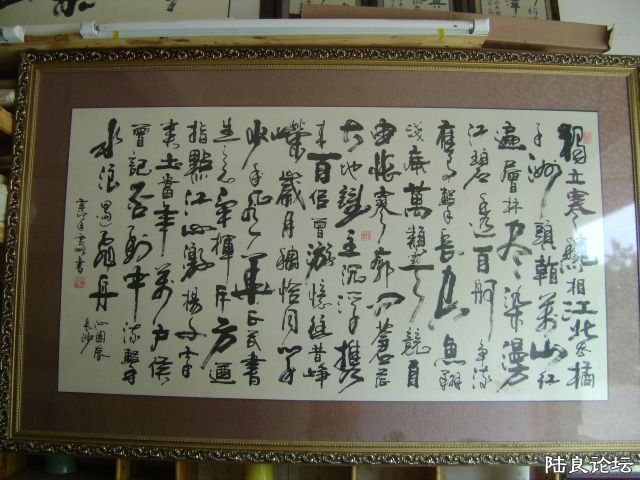 獨立寒秋湘江北去橘
子洲頭看萬山紅
遍層林盡染漫
江碧透百舸争流
鷹擊長空魚翔
淺底萬類霜天競自
由悵寥廓問蒼茫
大地誰主沉浮携
來百侣曾游憶往昔崢
嶸歲月稠恰同學
少年風華正茂書
生意氣揮斥方遒
指點江山激揚文字
糞土當年萬户侯
曾記否到中流擊
水浪遏飛舟
沁園春
長沙
書
陆良论坛